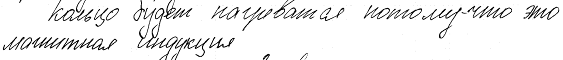 кольцо будет нагреватся потому-что это
магнитная индукция